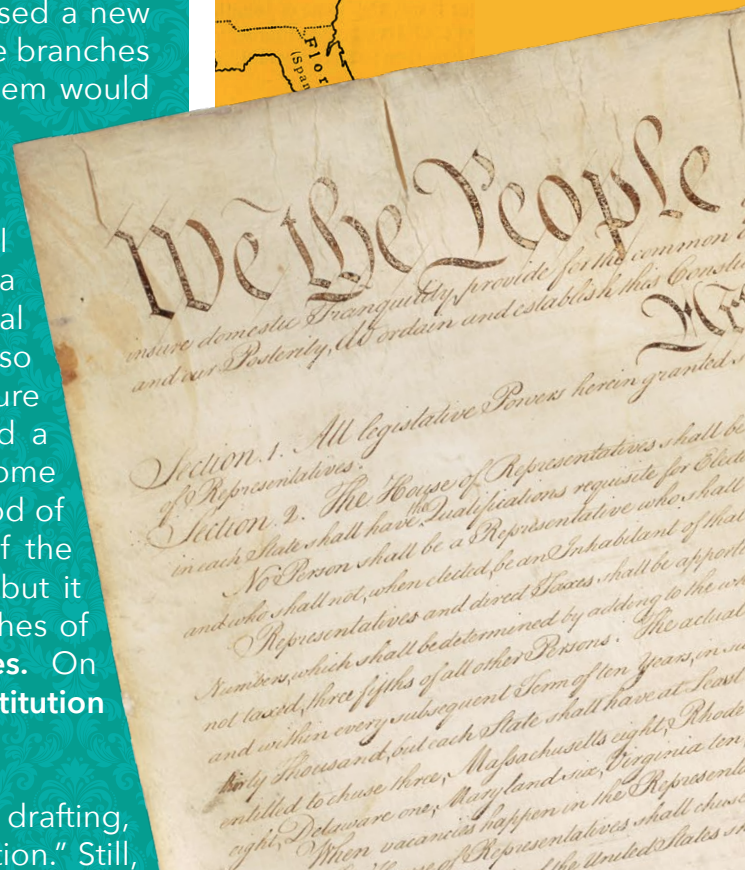 sed a new
e branches
em would
l
a
al
so
ure
d a
ome
od of
f the
but it
hes of
es. On
titution
drafting,
tion." Still,
Flor
(Span
We the People
insure domestic Tranquility, provide for the common
and our Posterity, do ordain and establish this Constitu
Section. 1. All legislative Powers herein granted s
of Representatives.
Section. 2. The House of Representatives shall be
in each State shall have the Qualifications requisite for Elect
No Person shall be a Representative who shall
and who shall not, when elected, be an Inhabitant of that
Representatives and direct Taxes shall be apporti
Numbers, which shall be determined by adding to the wh
not taxed, three fifths of all other Persons. The actual
and within every subsequent Term of ten Years, in su
thirty Thousand, but each State shall have at Least
entitled to chuse three, Massachusetts eight, Rhode
eight, Delaware one, Maryland six, Virginia ten,
When vacancies happen in the Representa
House of Representatives shall chuse
of the United States s